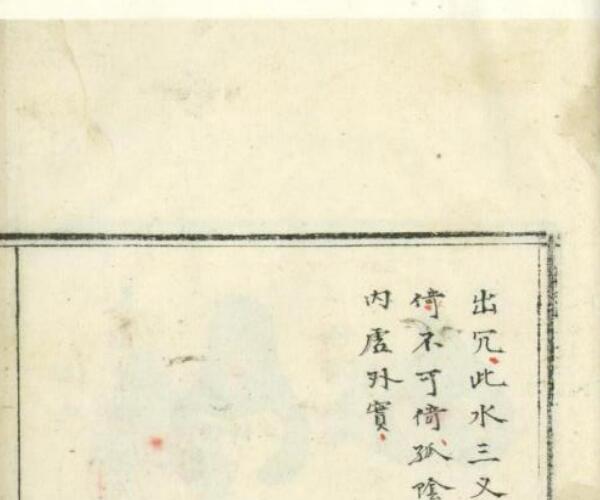 出冗此水三叉
倚不可倚孤陰
内虛外實